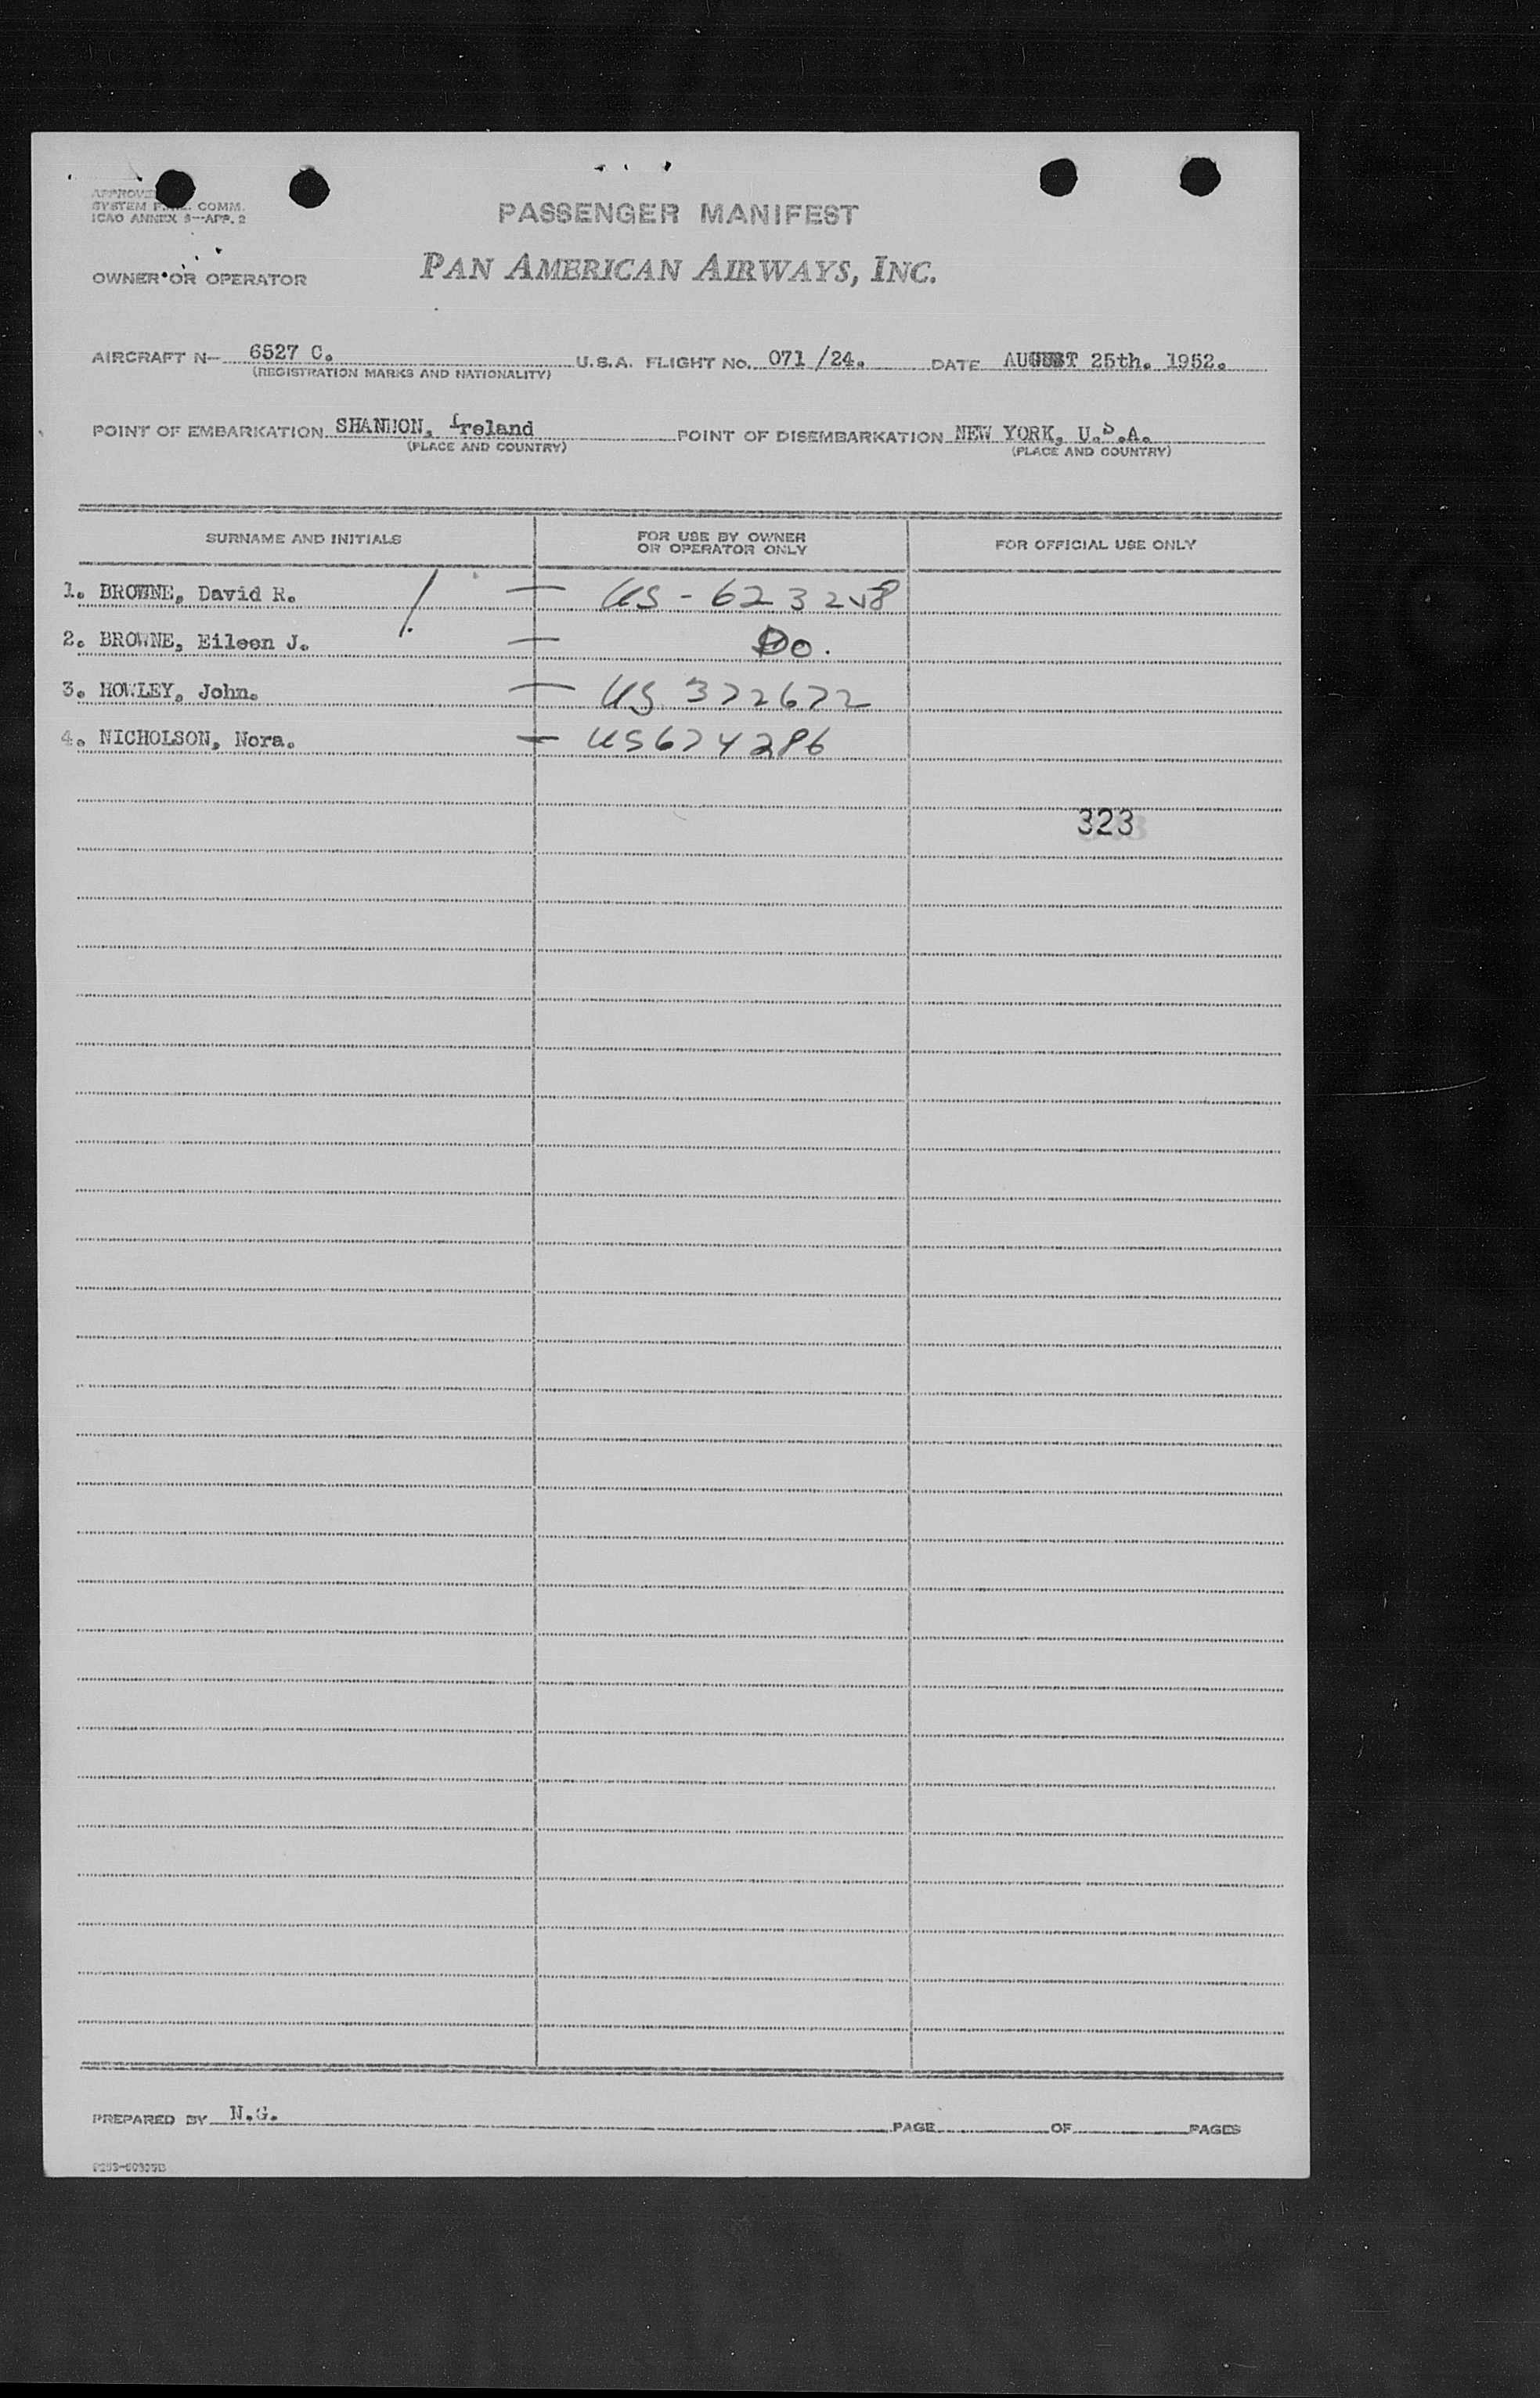 APPROVED
SYSTEM F. COMM.
ICAO ANNEX 9—APP. 2
PASSENGER MANIFEST
OWNER OR OPERATOR PAN AMERICAN AIRWAYS, INC.
AIRCRAFT N— 6527 C. U.S.A. FLIGHT NO. 071 /24. DATE AUGUST 25th. 1952.
(REGISTRATION MARKS AND NATIONALITY)
POINT OF EMBARKATION SHANNON, Ireland POINT OF DISEMBARKATION NEW YORK, U.S.A.
(PLACE AND COUNTRY) (PLACE AND COUNTRY)
SURNAME AND INITIALS FOR USE BY OWNER OR OPERATOR ONLY FOR OFFICIAL USE ONLY
1. BROWNE, David R. — US - 623258
2. BROWNE, Eileen J. — Do.
3. HOWLEY, John. — US 372672
4. NICHOLSON, Nora. — US674286
323
PREPARED BY N.G. PAGE OF PAGES